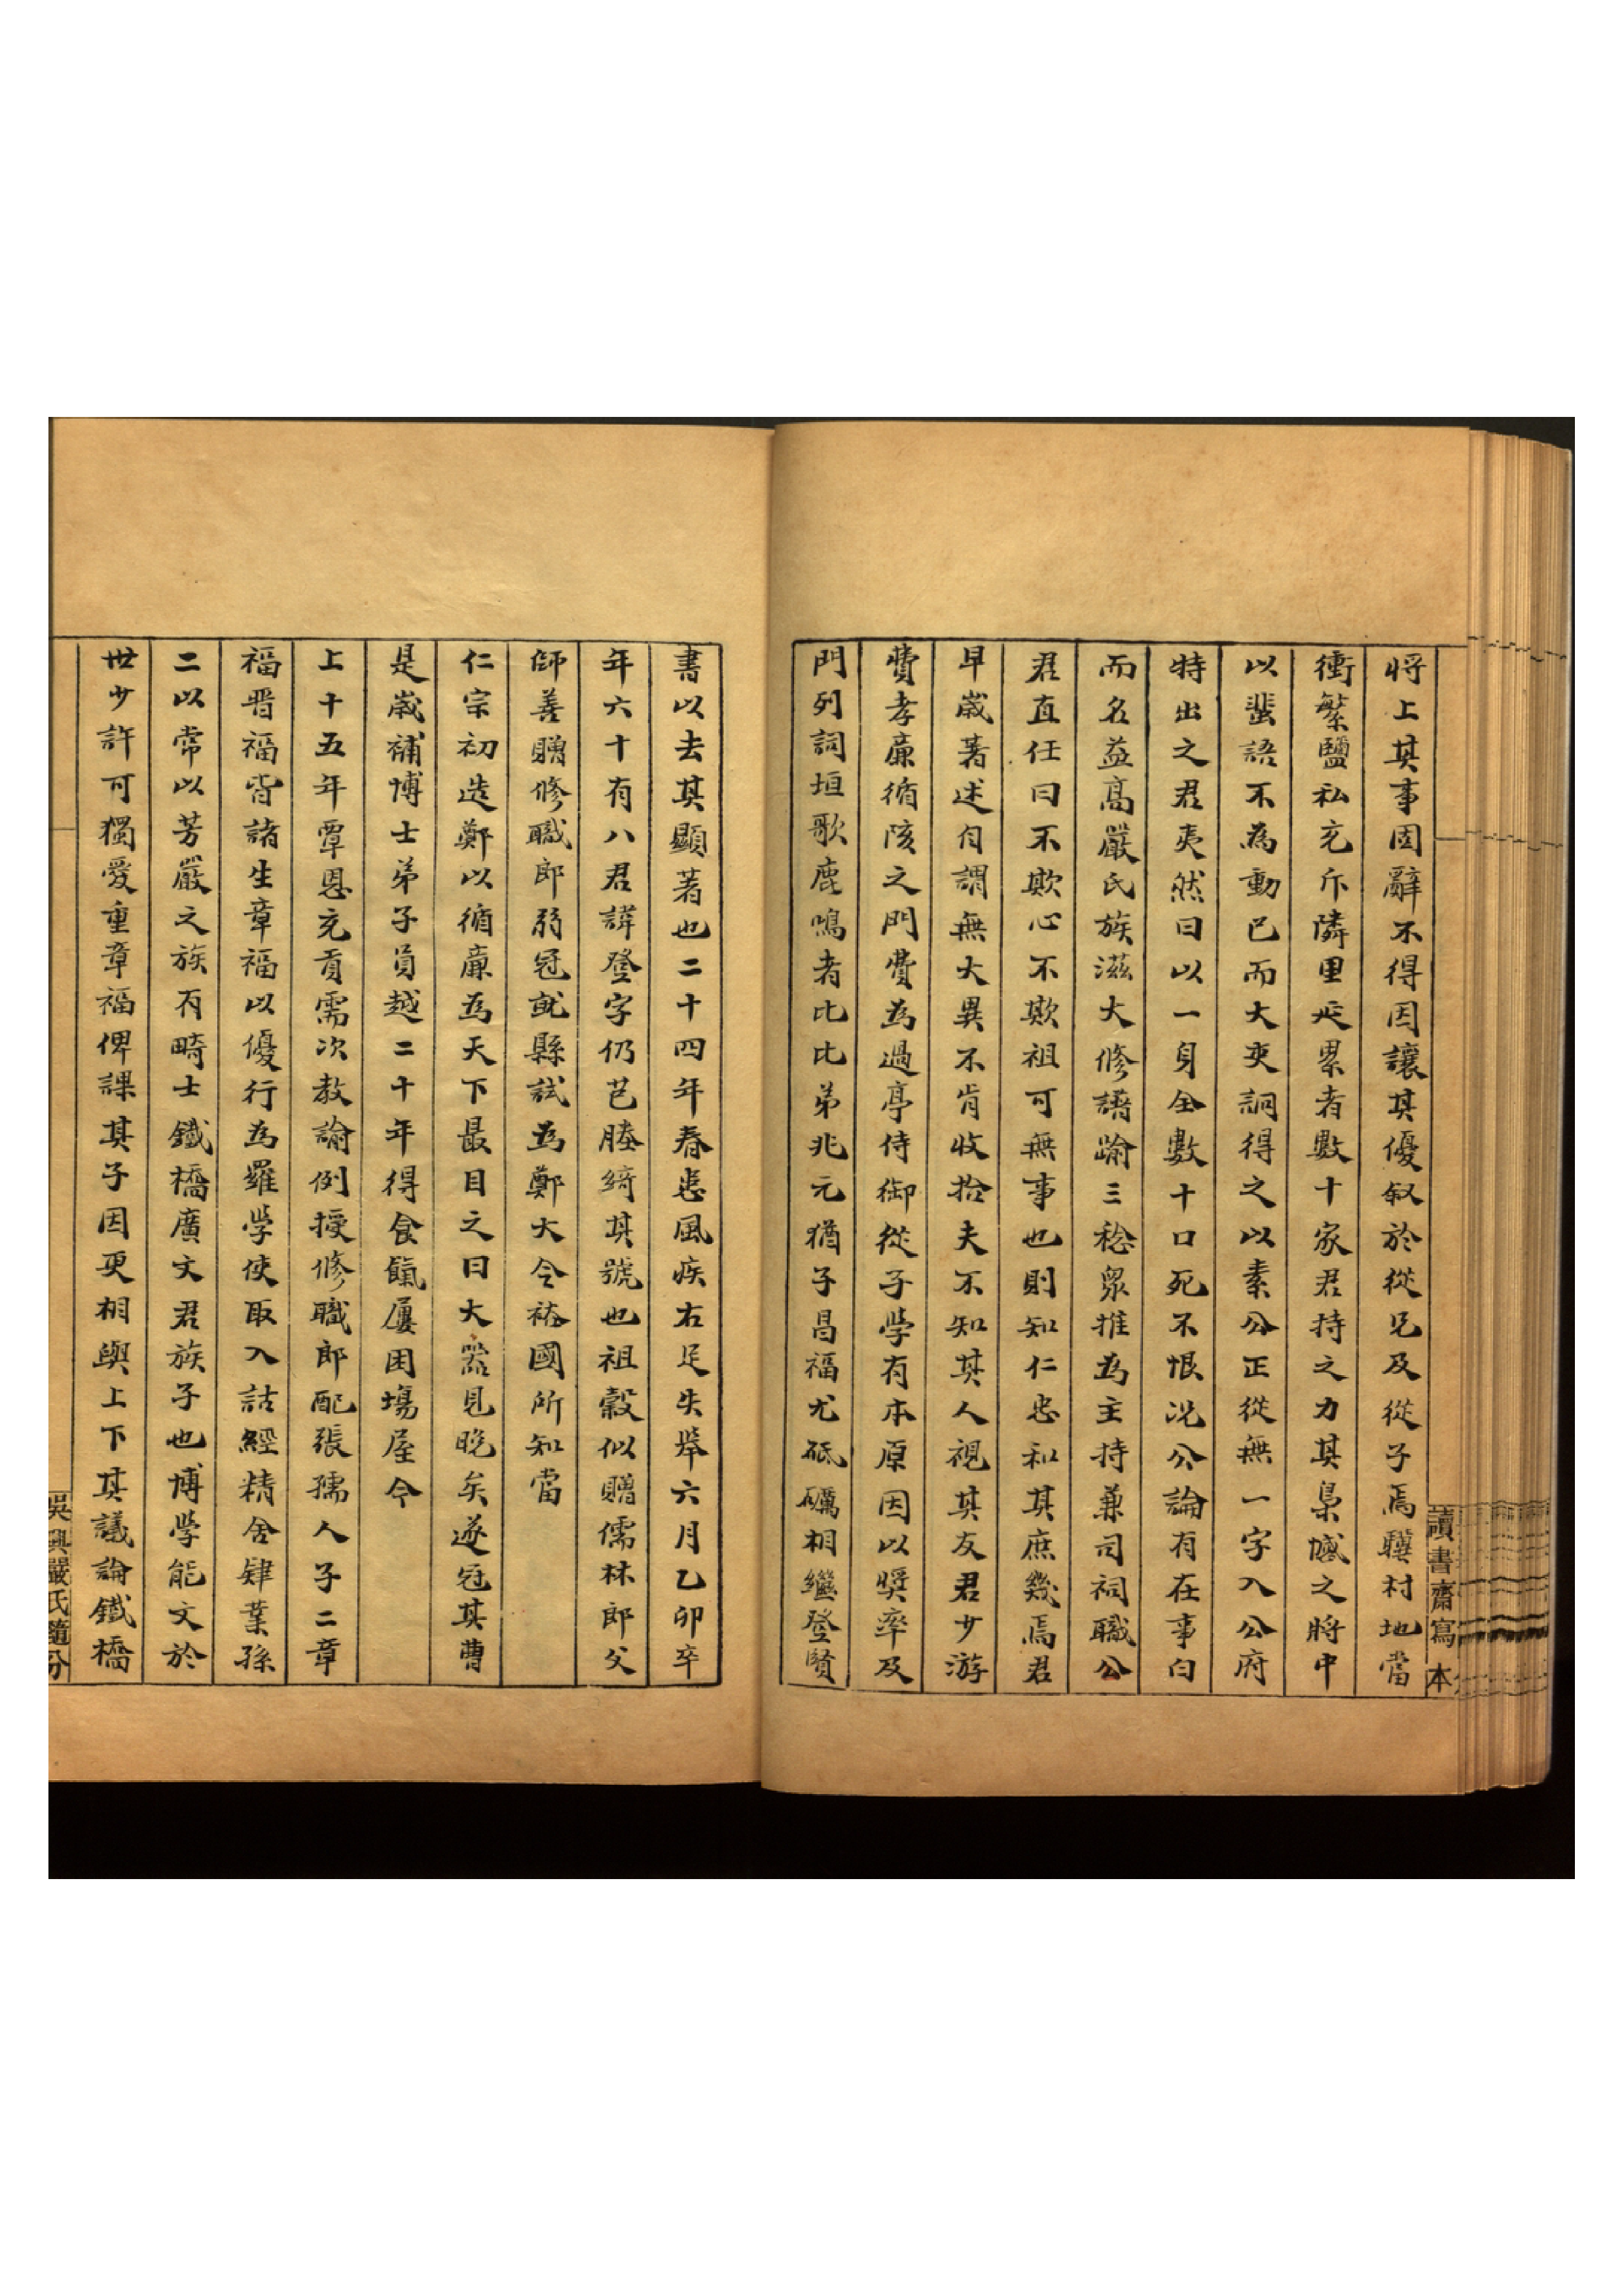 將上其事固辭不得因讓其優敘於從兄及從子焉驥村地當
衝繁鹽私充斥隣里延累者數十家君持之力其梟憾之將中
以蜚語不為動已而大吏詗得之以素公正從無一字入公府
特出之君夷然曰以一身全數十口死不恨況公論有在事白
而名益高嚴氏族滋大修譜踰三稔眾推為主持兼司祠職公
君直任曰不欺心不欺祖可無事也則知仁忠和其庶幾焉君
早歲著述自謂無大異不肯收拾夫不知其人視其友君少游
費孝廉循陔之門費為過亭侍御從子學有本原因以獎率及
門列詞垣歌鹿鳴者比比弟兆元猶子昌福尤砥礪相繼登賢
讀書齋寫本
書以去其顯著也二十四年春患風疾右足失舉六月乙卯卒
年六十有八君諱登字仍芑塍綺其號也祖穀似贈儒林郎父
師善贈修職郎弱冠就縣試為鄭大令裕國所知當
仁宗初造鄭以循廉為天下最目之曰大器見晚矣遂冠其曹
是歲補博士弟子員越二十年得食餼屢困場屋今
上十五年覃恩充貢需次教諭例授修職郎配張孺人子二章
福晋福皆諸生章福以優行為羅學使取入詁經精舍肄業孫
二以常以芳嚴之族有畸士鐵橋廣文君族子也博學能文於
世少許可獨愛重章福俾課其子因更相與上下其議論鐵橋
吳興嚴氏隨分